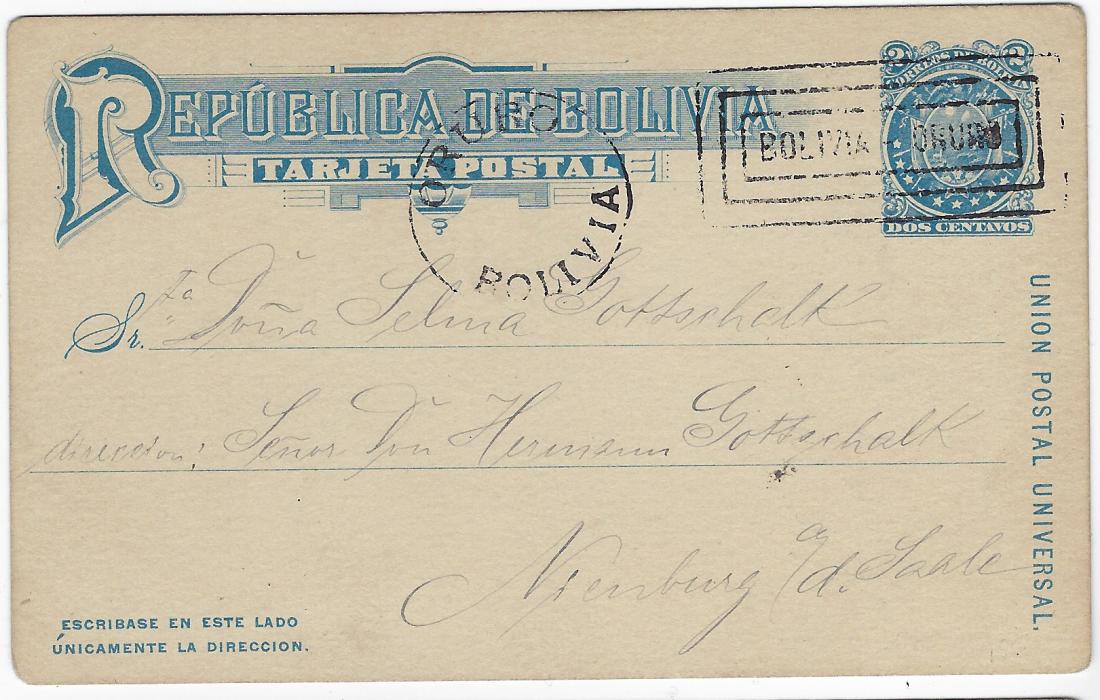 REPÚBLICA DE BOLIVIA
TARJETA POSTAL
2 2
CORREOS DE BOLIVIA
DOS CENTAVOS
BOLIVIA - ORURO
ORURO
BOLIVIA
Sr.ta Dña Selma Gottschalk
direccion: Señor Dn Hermann Gottschalk
Nienburg a/d. Saale
UNION POSTAL UNIVERSAL.
ESCRIBASE EN ESTE LADO
ÚNICAMENTE LA DIRECCION.